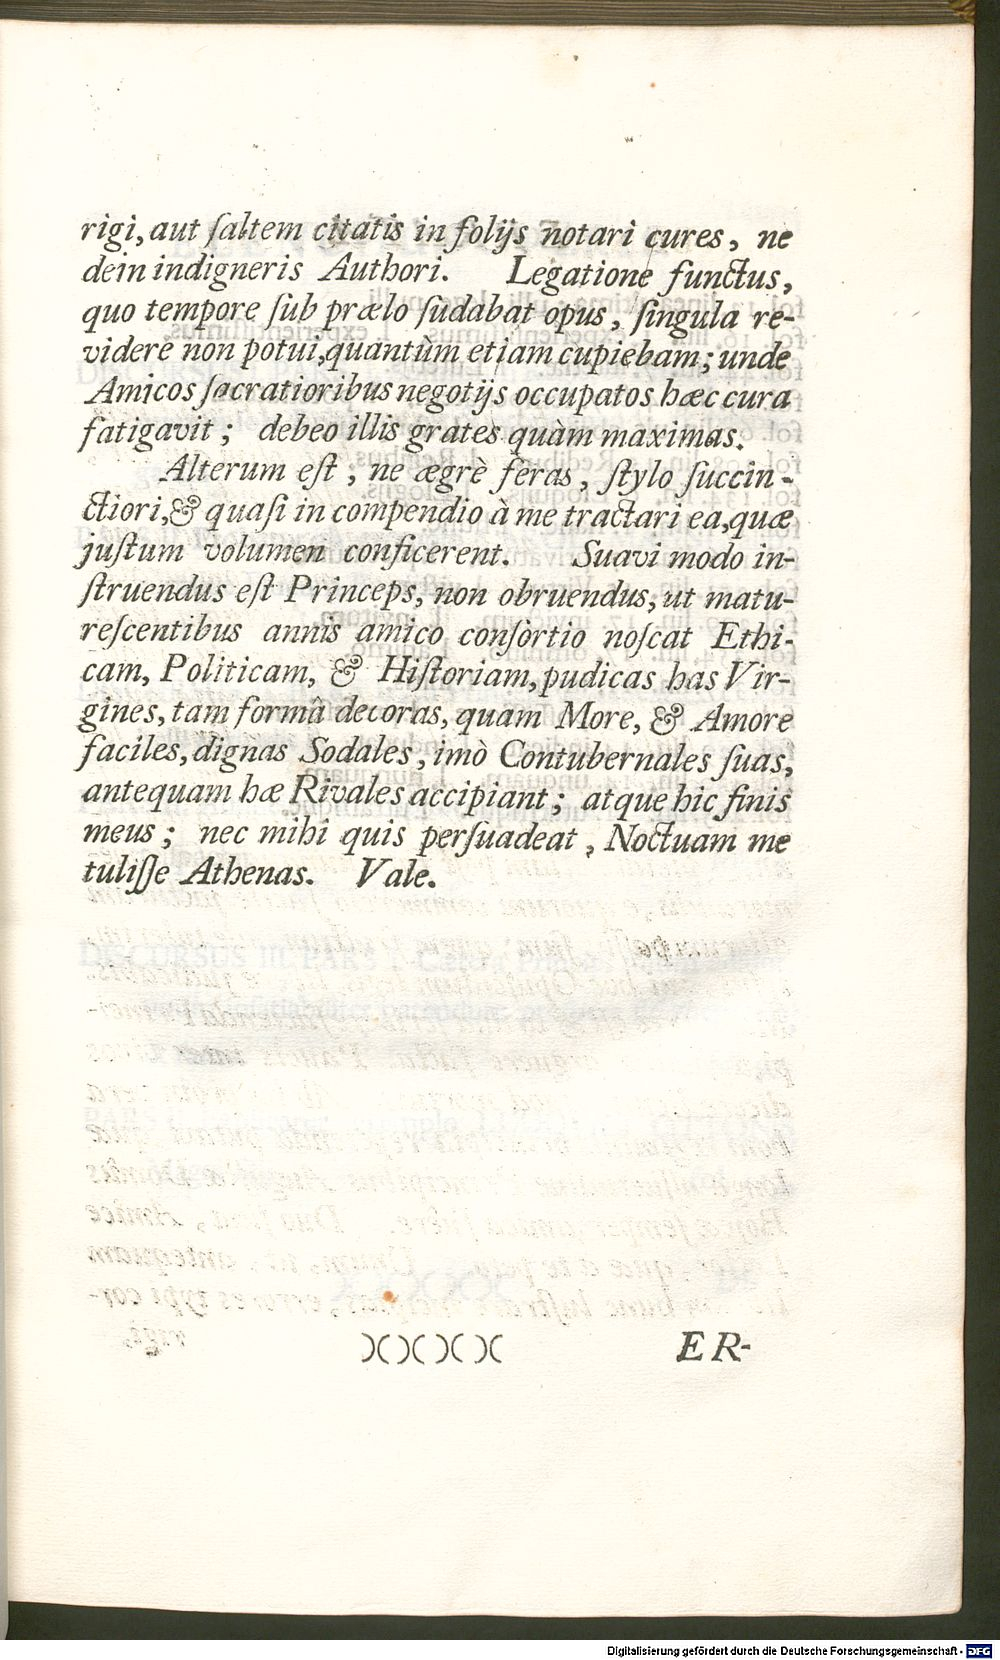 rigi, aut ſaltem citatis in folijs notari cures, ne
dein indigneris Authori. Legatione functus,
quo tempore ſub prælo ſudabat opus, ſingula re-
videre non potui, quantùm etiam cupiebam; unde
Amicos ſacratioribus negotijs occupatos hæc cura
fatigavit; debeo illis grates quàm maximas.
Alterum eſt, ne ægrè feras, ſtylo ſuccin-
ctiori, & quaſi in compendio à me tractari ea, quæ
juſtum volumen conficerent. Suavi modo in-
ſtruendus eſt Princeps, non obruendus, ut matu-
reſcentibus annis amico conſortio noſcat Ethi-
cam, Politicam, & Hiſtoriam, pudicas has Vir-
gines, tam formâ decoras, quam More, & Amore
faciles, dignas Sodales, imò Contubernales ſuas,
antequam hæ Rivales accipiant; atque hic finis
meus; nec mihi quis perſuadeat, Noctuam me
tuliſſe Athenas. Vale.
)( )( )( )( ER-
Digitalisierung gefördert durch die Deutsche Forschungsgemeinschaft - DFG